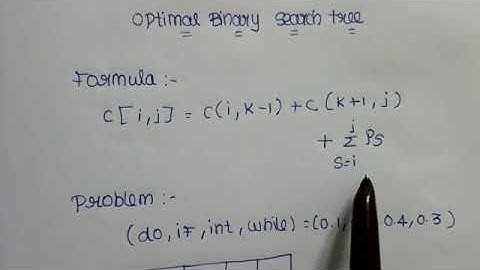 Optimal Binary Search tree
Formula :-
C[i,j] = C(i,k-1) + C(k+1,j)
+ j
Σ Ps
S=i
Problem :-
(do, if, int, while) = (0.1, 0.4, 0.3)